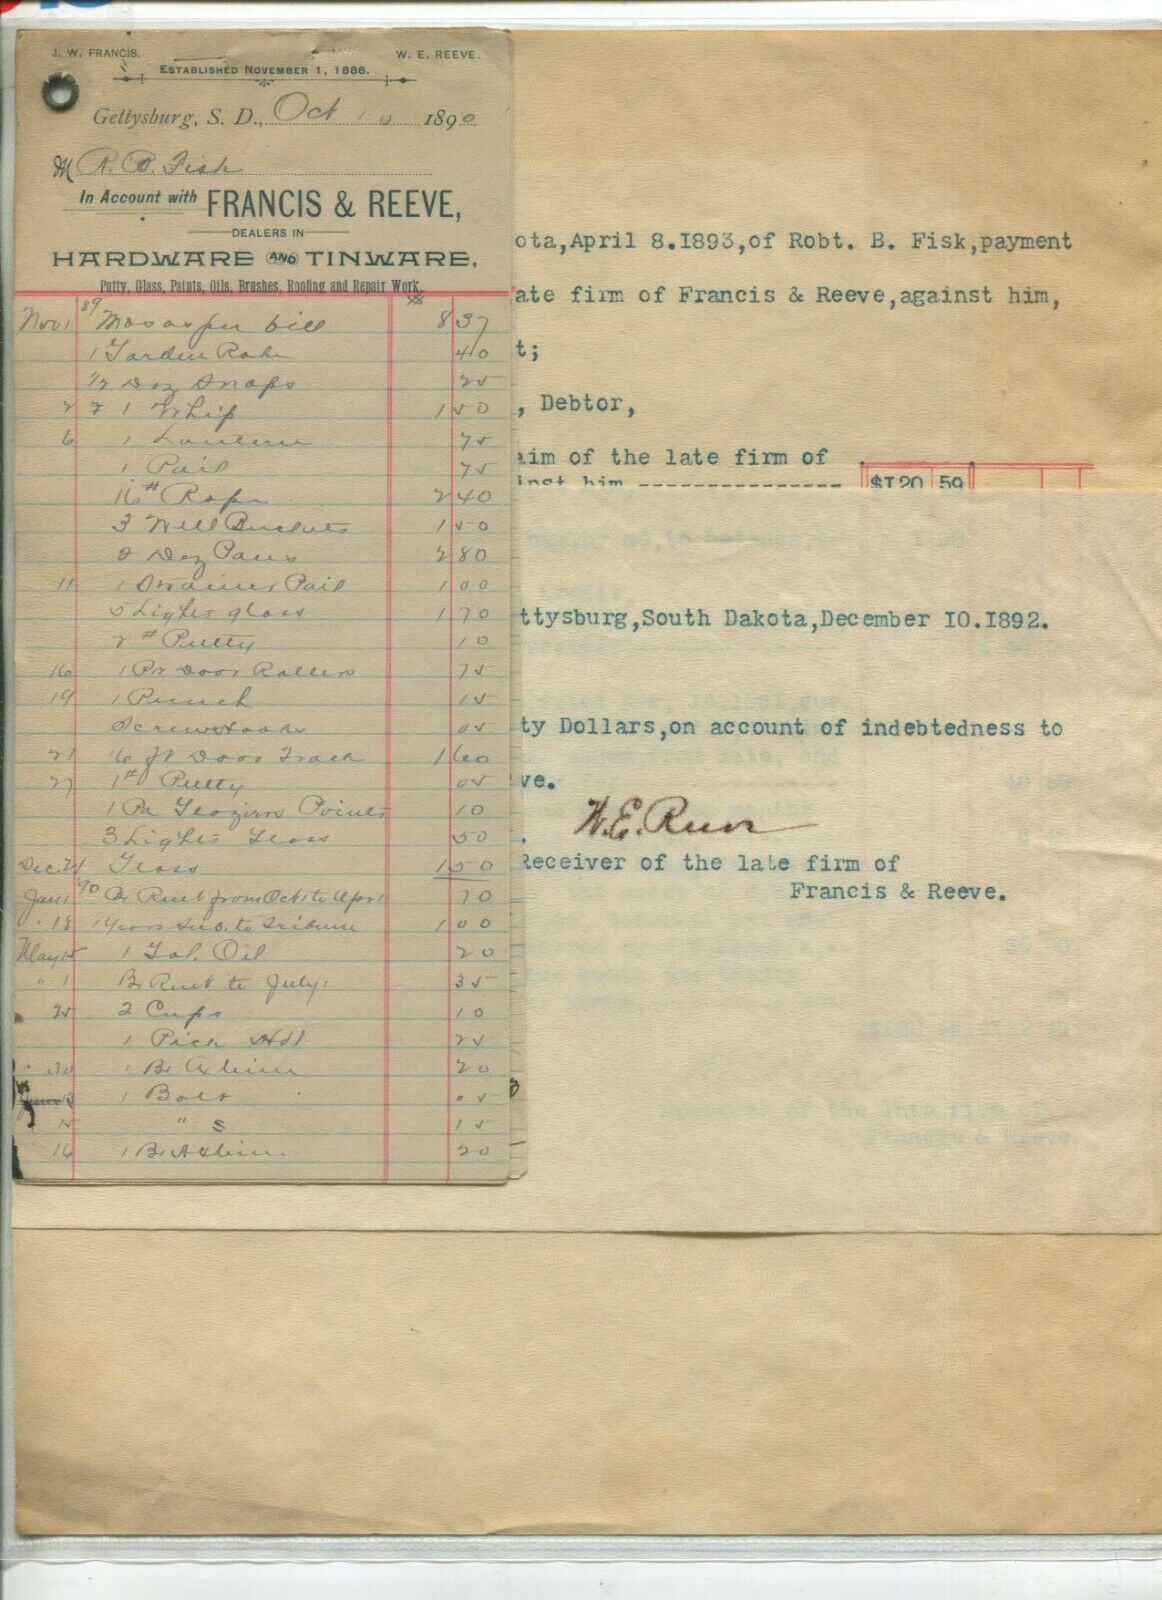 J. W. FRANCIS. W. E. REEVE.
ESTABLISHED NOVEMBER 1, 1886.
Gettysburg, S. D., Oct 10 1890
M R. B. Fisk
In Account with FRANCIS & REEVE,
DEALERS IN
HARDWARE AND TINWARE,
Putty, Glass, Paints, Oils, Brushes, Roofing and Repair Work.
Nov 1 89 Mds as per bill 8 37
1 Garden Rake 40
1/2 Doz Snaps 25
2 1 Whip 1 50
6 1 Lantern 75
1 Pail 75
16# Rope 2 40
3 Well Buckets 1 50
2 Doz Pans 2 80
11 1 Strainer Pail 1 00
Lights glass 1 70
2# Putty 10
16 1 Pr Door Rollers 75
19 1 Punch 15
Screw Hooks 05
21 16 ft Door Track 1 60
27 1# Putty 05
1 Pa Glaziers Points 10
3 Lights Glass 50
Dec 21 Glass 1 50
Jan 1 90 Rent from Oct 1 to Apr 1 70
18 1 year Sub. to Tribune 1 00
May 15 1 Gal. Oil 20
" 1 Rent to July 1 35
25 2 Cups 10
1 Pick Hdl 25
30 1 20
1 Bolt 05
15 " s 15
16 1 20
ota,April 8.1893,of Robt. B. Fisk,payment
ate firm of Francis & Reeve,against him,
t;
, Debtor,
aim of the late firm of
inst him --------------- $120 59
ttysburg,South Dakota,December 10.1892.
ty Dollars,on account of indebtedness to
ve.
W. E. Reeve
Receiver of the late firm of
Francis & Reeve.
of the late firm of
Francis & Reeve.